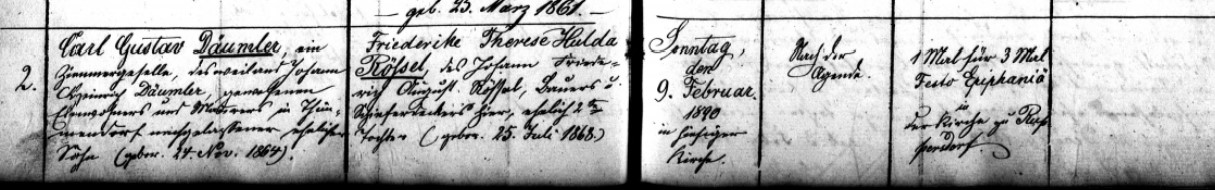 geb. 23. März 1861.
2.
Carl Gustav Däumler, ein
Zimmergeselle, des weiland Johann
Heinrich Däumler, gewesenen
Einwohners und Maurers in Thim-
mendorf nachgelassener ehelicher
Sohn (gebor. 24. Nov. 1864).
Friederike Therese Hulda
Rössel, des Johann Friede-
rich August Rössel, Bauers u.
Schieferdeckers hier, ehelich 2te
Tochter (gebor. 25. Juli 1868.)
Sonntag,
den
9. Februar.
1890
in hiesiger
Kirche.
Nach der
Agende.
1 Mal für 3 Mal
Festo Epiphaniä
in
der Kirche zu